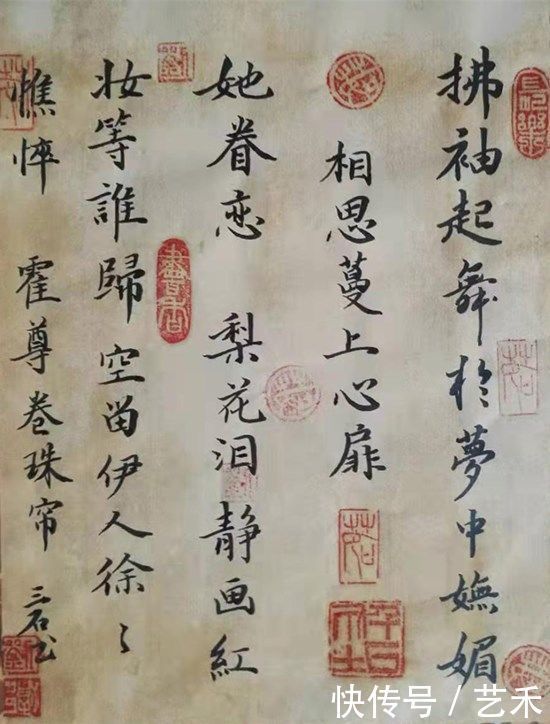 拂袖起舞於夢中嫵媚
相思蔓上心扉
她眷恋 梨花泪静画紅
妆等誰歸空留伊人徐〻
憔悴 霍尊卷珠帘 三石书
長樂
快传号 / 艺禾